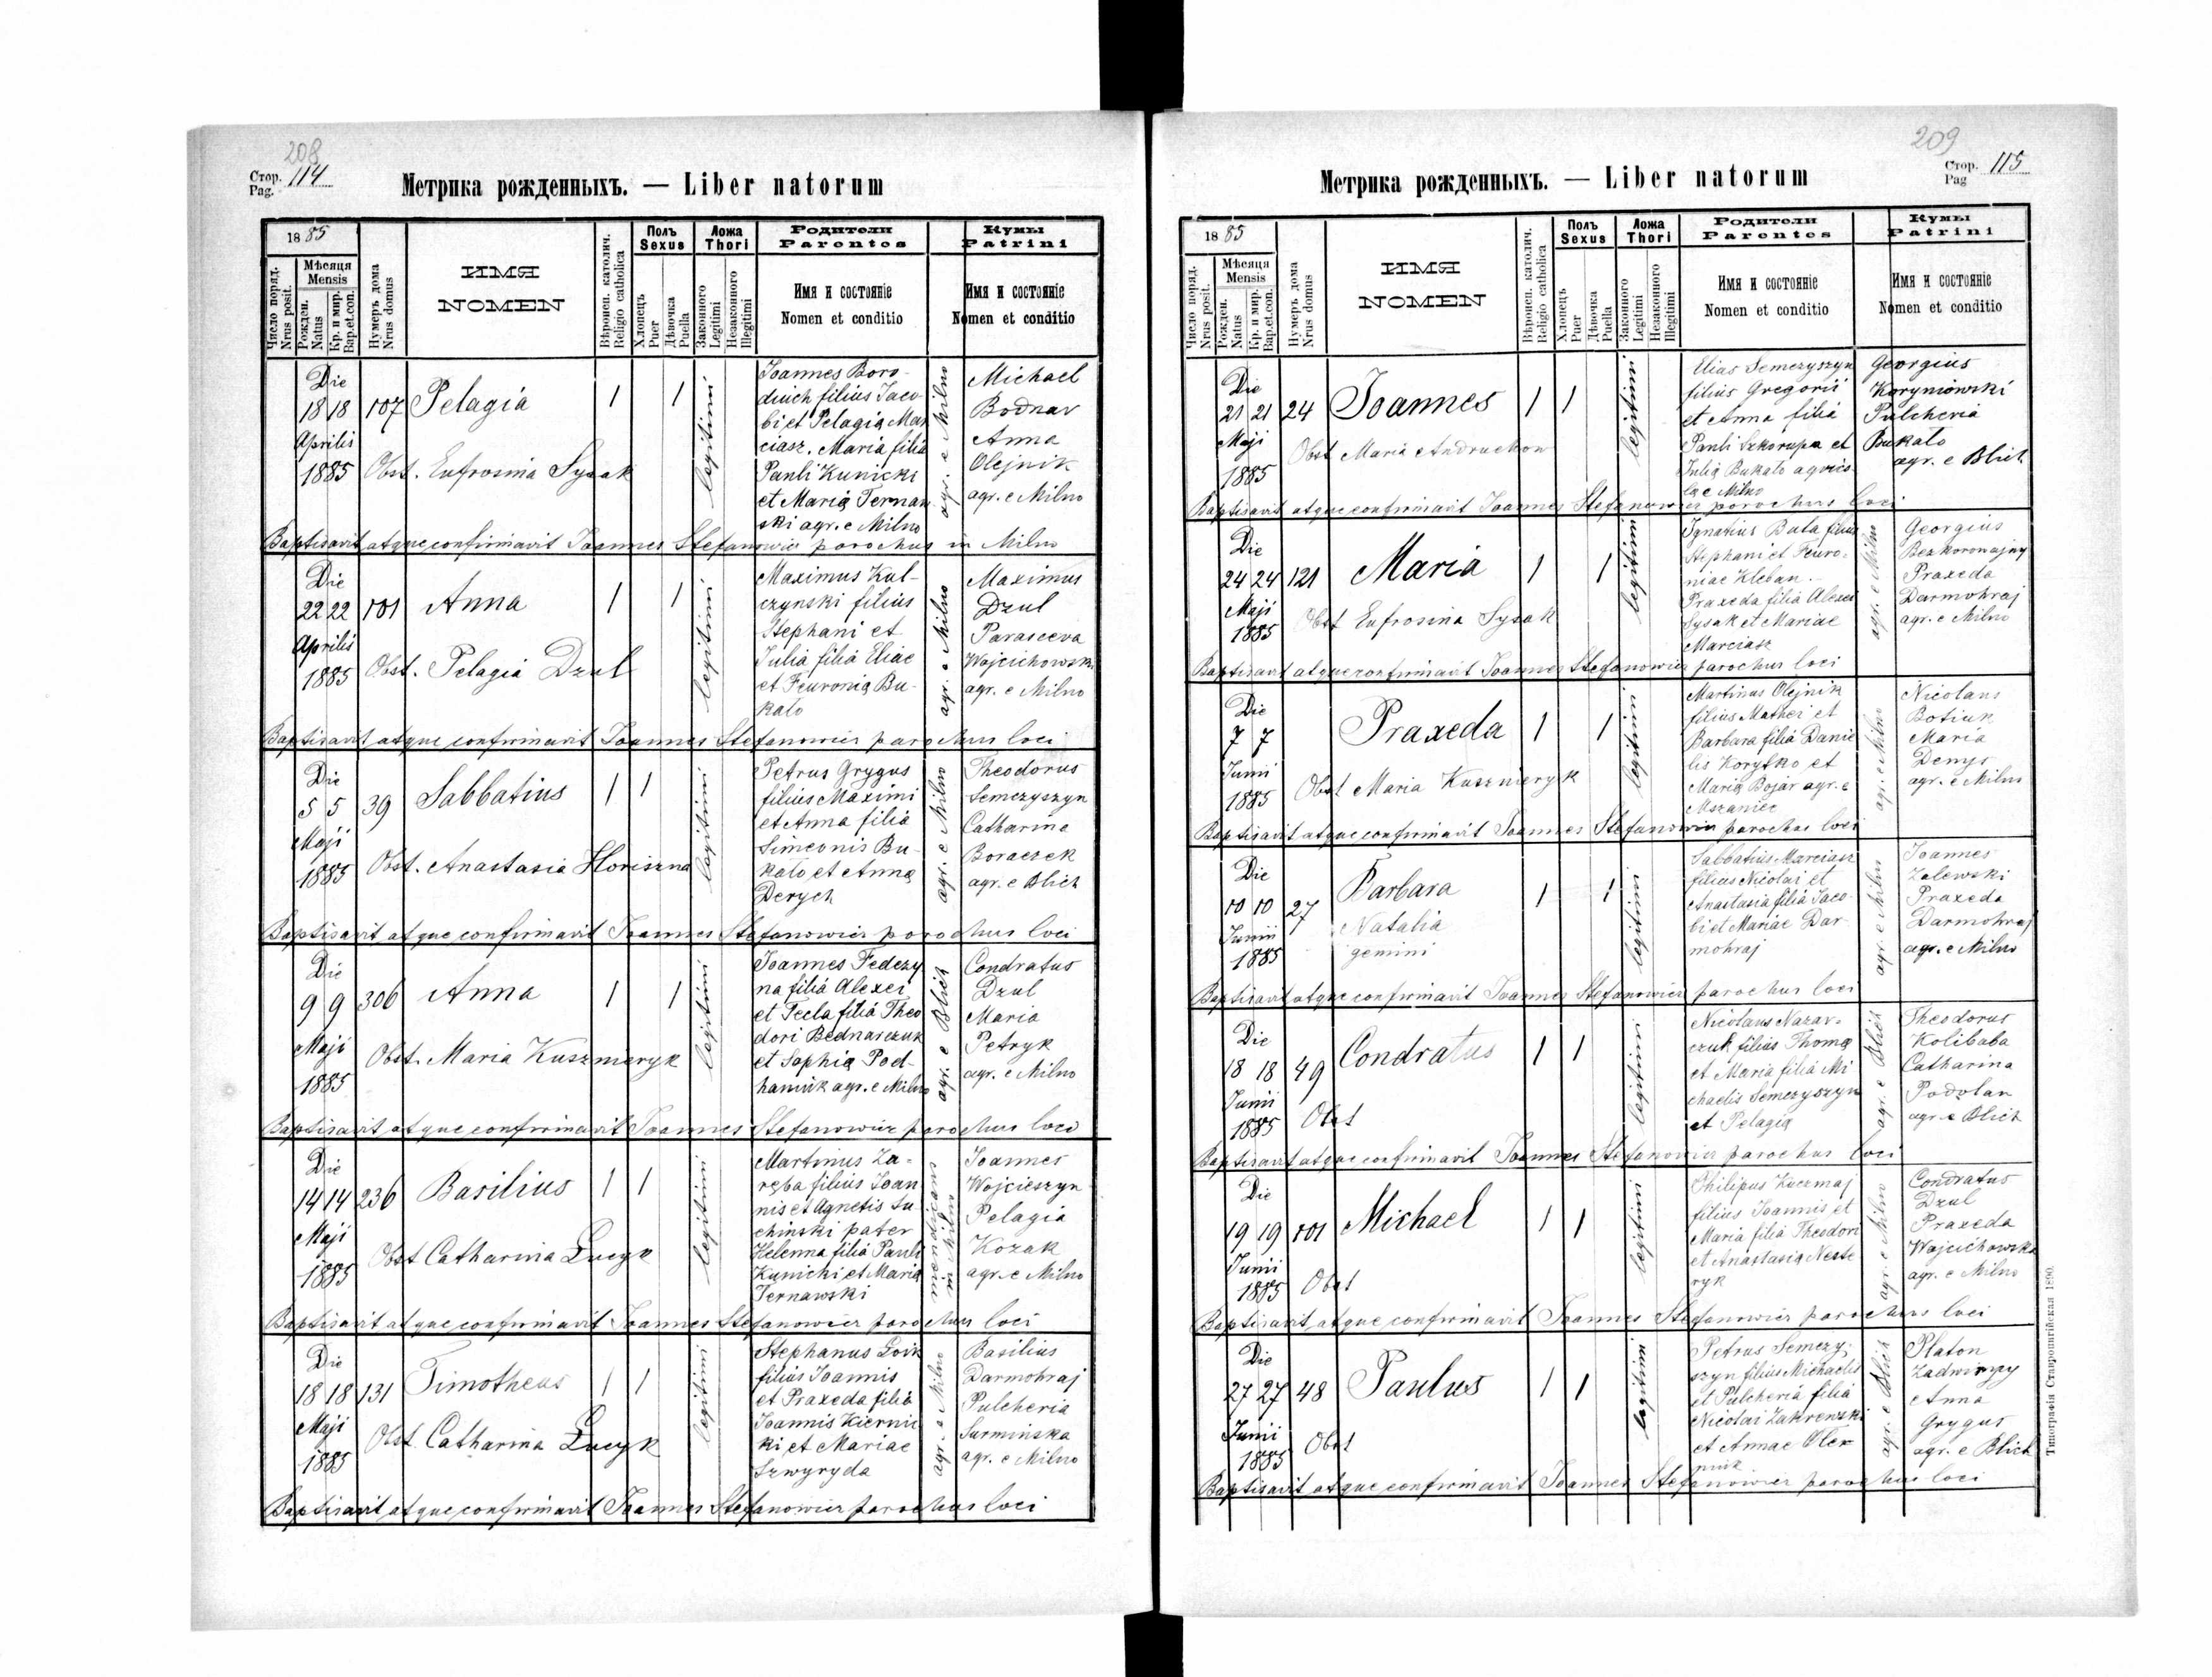 208
Стор. 114
Pag.
Метрика рожденныхъ. — Liber natorum
1885
Число поряд.
Nrus posit.
Мѣсяця
Mensis
Рожден.
Natus
Кр. и мир.
Bap.et.con.
Нумеръ дома
Nrus domus
ИМЯ
NOMEN
Вѣроисп. католич.
Religio catholica
Полъ
Sexus
Хлопецъ
Puer
Дѣвочка
Puella
Ложа
Thori
Законного
Legitimi
Незаконного
Illegitimi
Родители
Parentes
Имя и состоянiе
Nomen et conditio
Кумы
Patrini
Имя и состоянiе
Nomen et conditio
Die
18 18 107 Pelagia 1 1
Aprilis
1885 Obst. Eufrosina Sysak
legitimi
Joannes Boro-
diuch filius Jaco-
bi et Pelagia Mar
ciasz. Maria filia
Pauli Kunicki
et Maria Ternaw
ski agr. e Milno
agr. e Milno
Michael
Bodnar
Anna
Olejnik
agr. e Milno
Baptisavit atque confirmavit Joannes Stefanowicz parochus in Milno
Die
22 22 101 Anna 1 1
Aprilis
1885 Obst. Pelagia Dzul
legitimi
Maximus Kul-
czynski filius
Stephani et
Julia filia Eliae
et Feuronia Bu-
kato
agr. e Milno
Maximus
Dzul
Parasceva
Wojcichowski
agr. e Milno
Baptisavit atque confirmavit Joannes Stefanowicz parochus loci
Die
5 5 39 Sabbatius 1 1
Maji
1885 Obst. Anastasia Horiszna
legitimi
Petrus Grygus
filius Maximi
et Anna filia
Simeonis Bu-
kato et Anna
Derych
agr. e Milno
Theodorus
Semczyszyn
Catharina
Boraczek
agr. e Blich
Baptisavit atque confirmavit Joannes Stefanowicz parochus loci
Die
9 9 306 Anna 1 1
Maji
1885 Obst. Maria Kusznieryk
legitimi
Joannes Fedczy
na filia Alexei
et Tecla filia Theo
dori Bednarczuk
et Sophia Pod-
haniuk agr. e Milno
agr. e Blich
Condratus
Dzul
Maria
Petryk
agr. e Milno
Baptisavit atque confirmavit Joannes Stefanowicz parochus loci
Die
14 14 236 Basilius 1 1
Maji
1885 Obst Catharina Łucyk
legitimi
Martinus Za-
ręba filius Joan
nis et Agnetis Su
chinski pater
Helenna filia Pauli
Kunicki et Maria
Ternawski
mendicans
in Milno
Joannes
Wojcieszyn
Pelagia
Kozak
agr. e Milno
Baptisavit atque confirmavit Joannes Stefanowicz parochus loci
Die
18 18 131 Timotheus 1 1
Maji
1885 Obst. Catharina Łucyk
legitimi
Stephanus Łoik
filius Joannis
et Praxeda filia
Joannis Kiernic
ki et Mariae
Szwyryda
agr. e Milno
Basilius
Darmohraj
Pulcheria
Surminska
agr. e Milno
Baptisavit atque confirmavit Joannes Stefanowicz parochus loci
209
Стор. 115
Pag
Метрика рожденныхъ. — Liber natorum
1885
Число поряд.
Nrus posit.
Мѣсяця
Mensis
Рожден.
Natus
Кр. и мир.
Bap.et.con.
Нумеръ дома
Nrus domus
ИМЯ
NOMEN
Вѣроисп. католич.
Religio catholica
Полъ
Sexus
Хлопецъ
Puer
Дѣвочка
Puella
Ложа
Thori
Законного
Legitimi
Незаконного
Illegitimi
Родители
Parentes
Имя и состоянiе
Nomen et conditio
Кумы
Patrini
Имя и состоянiе
Nomen et conditio
Die
21 21 24 Joannes 1 1
Maji
1885 Obst Maria Andruckow
legitimi
Elias Semczyszyn
filius Gregorii
et Anna filia
Pauli Szkorupa et
Julia Bukato agrico
lae Milno
Georgius
Koryniowski
Pulcheria
Bukato
agr. e Blich
Baptisavit atque confirmavit Joannes Stefanowicz parochus loci
Die
24 24 121 Maria 1 1
Maji
1885 Obst Eufrosina Sysak
legitimi
Ignatius Buta filius
Stephani et Feuro-
niae Kleban.
Praxeda filia Alexei
Sysak et Mariae
Marciasz
agr. e Milno
Georgius
Bezkorowajny
Praxeda
Darmohraj
agr. e Milno
Baptisavit atque confirmavit Joannes Stefanowicz parochus loci
Die
7 7 Praxeda 1 1
Junii
1885 Obst Maria Kusznieryk
legitimi
Martinus Olejnik
filius Mathei et
Barbara filia Danie
lis Korytko et
Maria Bojar agr. e
Mszaniec
agr. e Milno
Nicolaus
Botiuk
Maria
Denys
agr. e Milno
Baptisavit atque confirmavit Joannes Stefanowicz parochus loci
Die
10 10 27 Barbara 1 1
Junii Natalia
1885 gemini
legitimi
Sabbatius Marciasz
filius Nicolai et
Anastasia filia Jaco-
bi et Mariae Dar-
mohraj
agr. e Milno
Joannes
Zalewski
Praxeda
Darmohraj
agr. e Milno
Baptisavit atque confirmavit Joannes Stefanowicz parochus loci
Die
18 18 49 Condratus 1 1
Junii
1885 Obst
legitimi
Nicolaus Nazar-
czuk filius Thoma
et Maria filia Mi
chaelis Semczyszyn
et Pelagia
agr. e Blich
Theodorus
Kolibaba
Catharina
Podolan
agr. e Blich
Baptisavit atque confirmavit Joannes Stefanowicz parochus loci
Die
19 19 101 Michael 1 1
Junii
1885 Obst
legitimi
Philipus Kuczmaj
filius Joannis et
Maria filia Theodori
et Anastasia Neste
ryk
agr. e Milno
Condratus
Dzul
Praxeda
Wojcichowska
agr. e Milno
Baptisavit atque confirmavit Joannes Stefanowicz parochus loci
Die
27 27 48 Paulus 1 1
Junii
1885 Obst
legitimi
Petrus Semczy-
szyn filius Michaelis
et Pulcheria filia
Nicolai Zakrewski
et Annae Olek
agr. e Blich
Platon
Zadwirny
Anna
Grygus
agr. e Blich
Baptisavit atque confirmavit Joannes Stefanowicz parochus loci
Типографія Ставропигійская 1890.